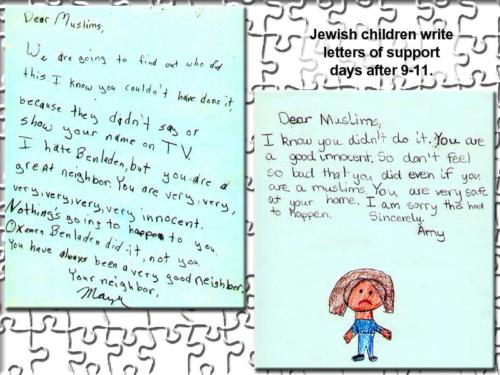 Dear Muslims,
We are going to find out who did
this. I know you couldn't have done it,
because they didn't say or
show your name on TV.
I hate Benladen, but you are a
great neighbor. You are very, very,
very, very, very, very innocent.
Nothing's going to happen to you.
Oxemen Benladen did it, not you.
You have always been a very good neighbor.
Your neighbor,
Maya
Jewish children write
letters of support
days after 9-11.
Dear Muslims,
I know you didn't do it. You are
a good innocent. So don't feel
so bad that you did even if you
are a muslims. You are very safe
at your home. I am sorry this had
to happen. Sincerely,
Amy